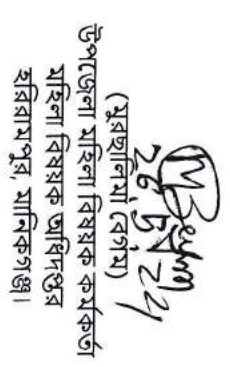 MBegum
26.5.24
(মুরছালিমা বেগম)
উপজেলা মহিলা বিষয়ক কর্মকর্তা
মহিলা বিষয়ক অধিদপ্তর
হরিরামপুর, মানিকগঞ্জ।